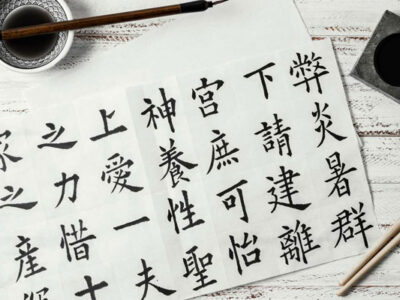 弊炎暑群
下請建離
宮庶可怡
神養性聖
上愛一夫
之力惜
之産